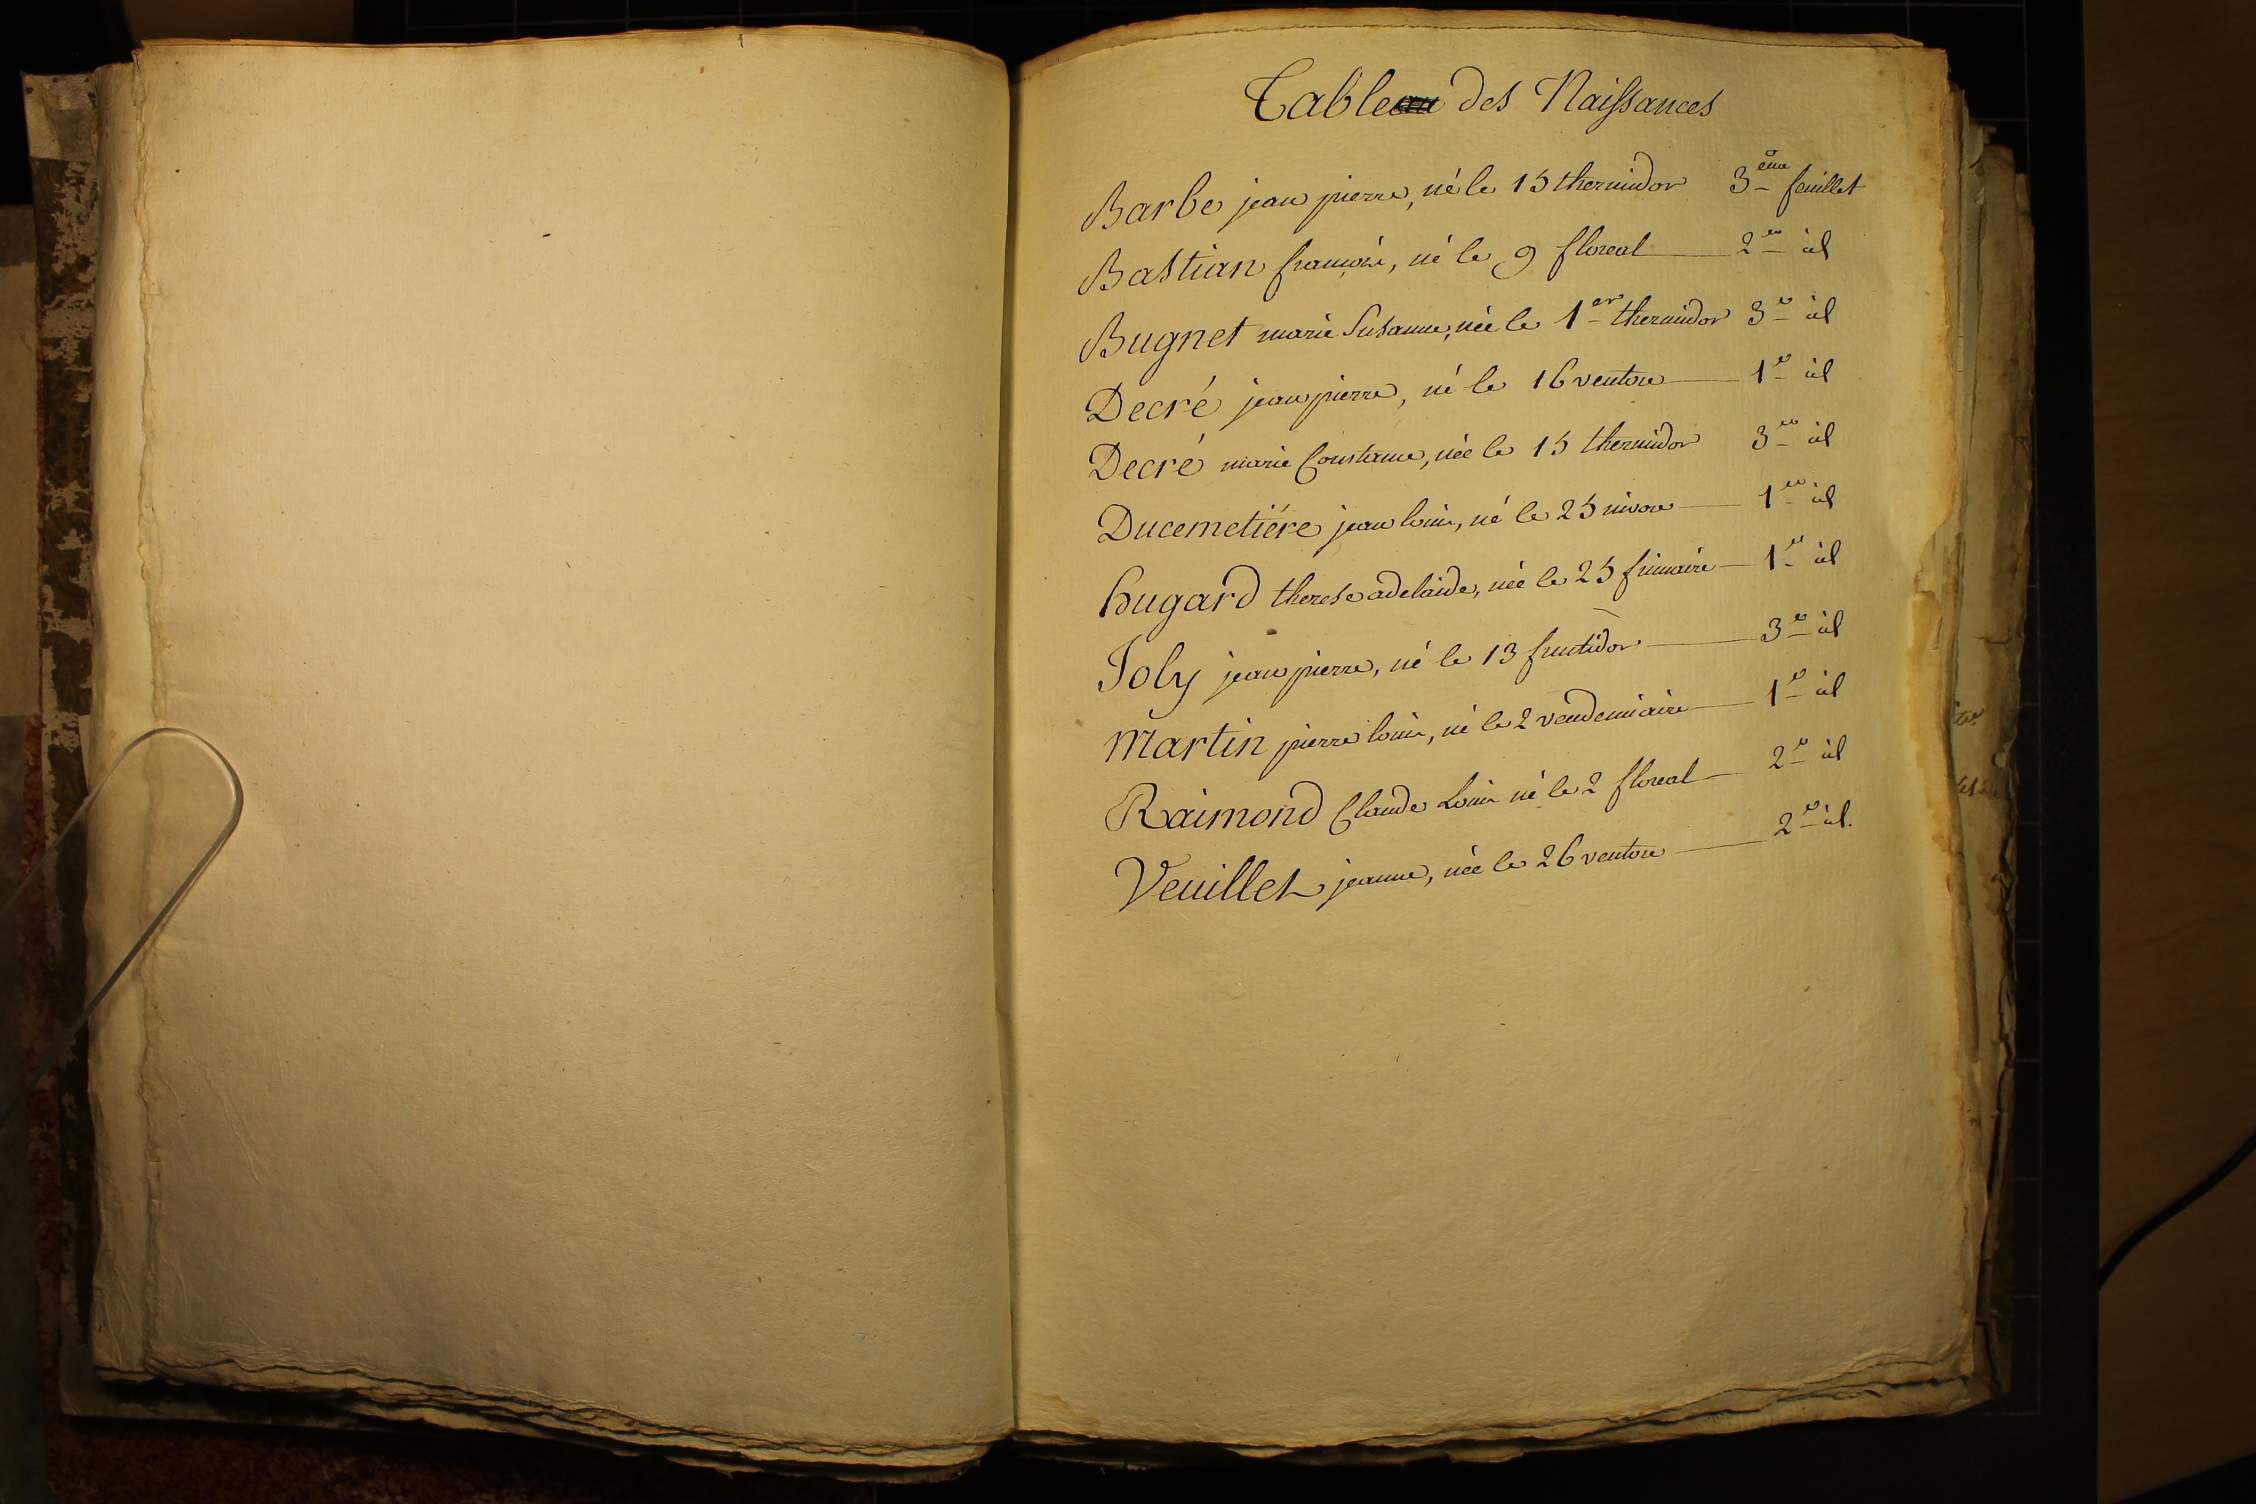 Table des Naissances
Barbe jean pierre, né le 15 thermidor 3eme feuillet
Bastian françois, né le 9 floreal 2e id
Bugnet marie Susanne, née le 1er thermidor 3e id
Decré jean pierre, né le 16 ventose 1e id
Decré marie Constance, née le 15 thermidor 3e id
Ducemetiére jean louis, né le 25 nivose 1e id
hugard therese adelaide, née le 25 frimaire 1e id
Joly jean pierre, né le 13 fructidor 3e id
Martin pierre louis, né le 2 vendemiaire 1e id
Raimond Claude Louis né le 2 floreal 2e id
Veuillet jeanne, née le 26 ventose 2e id.